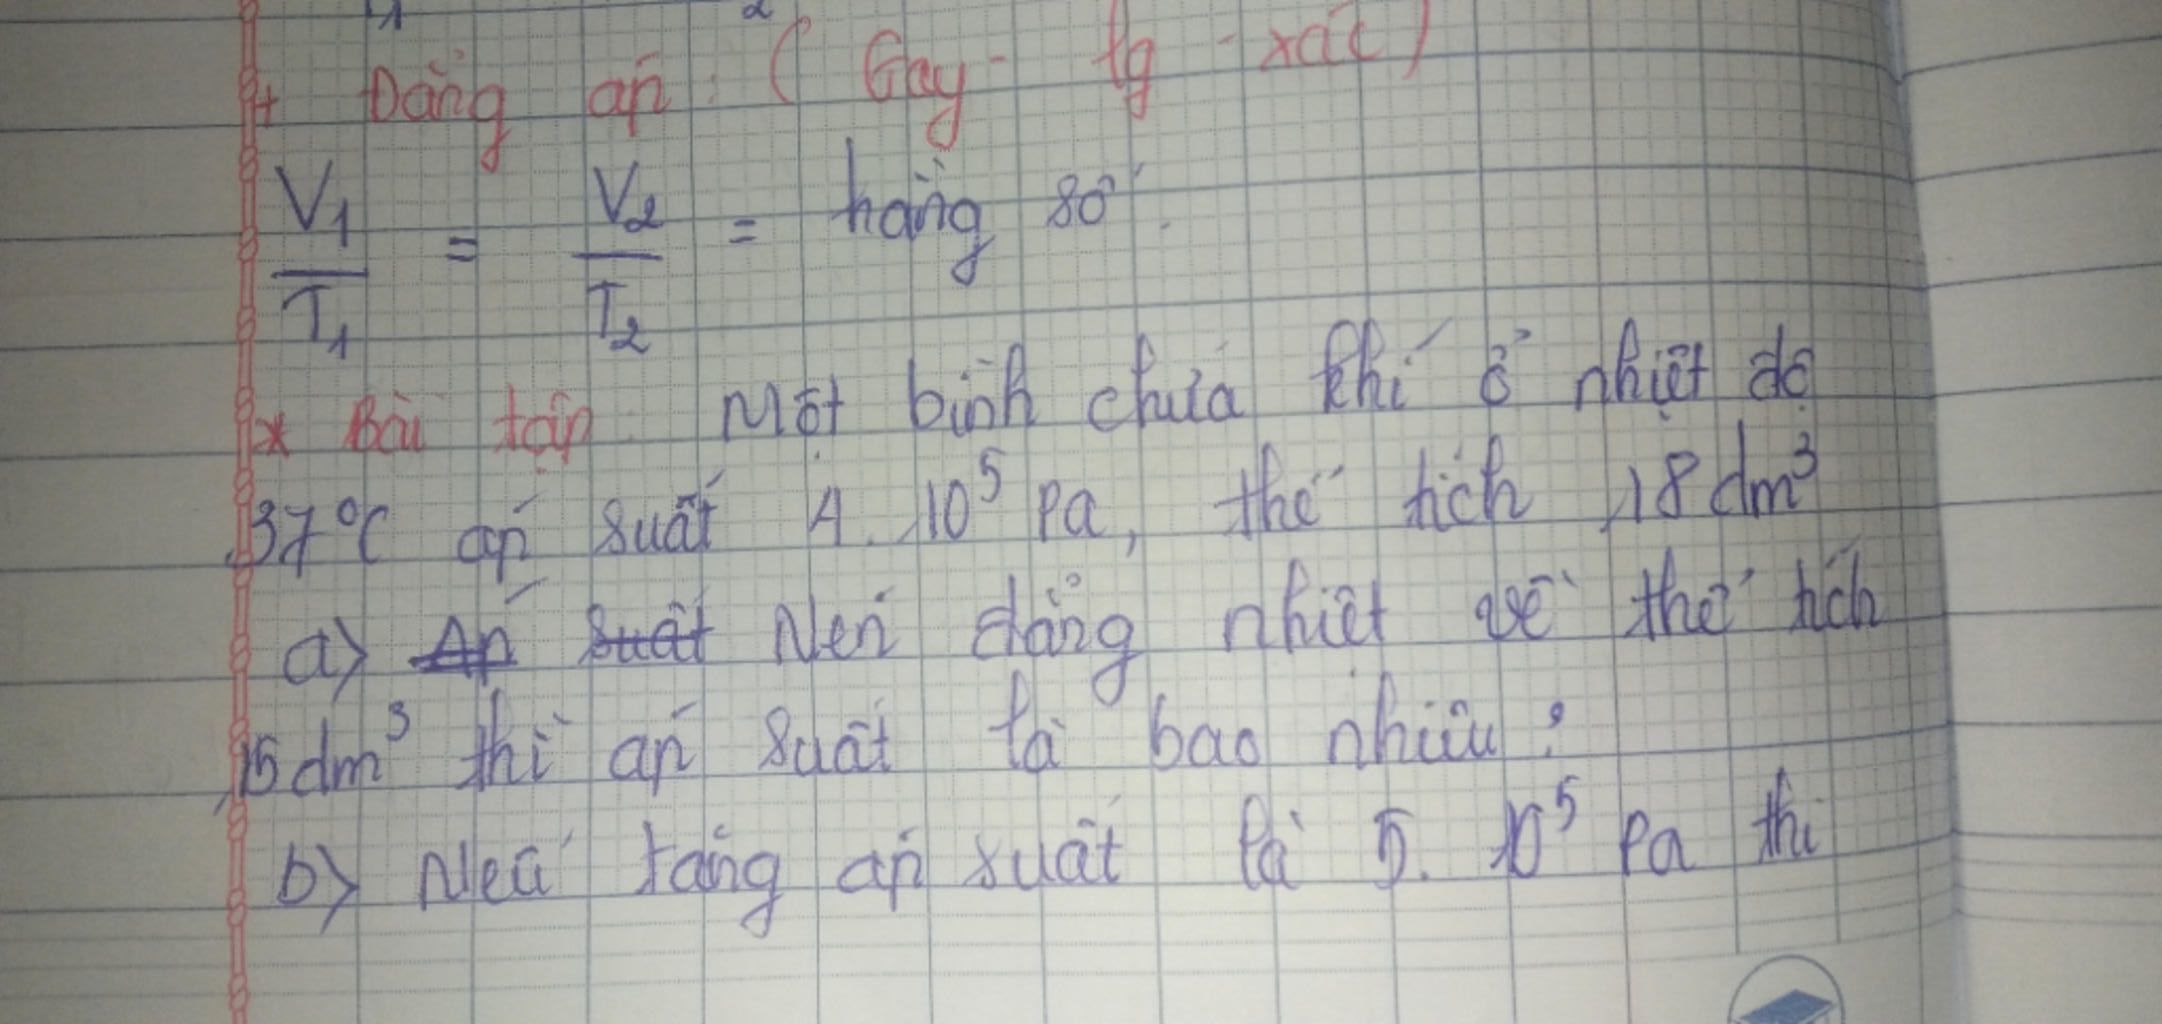 + Đẳng áp : ( Gay - lg - xác)
V1/T1 = V2/T2 = hằng số.
* Bài tập Một bình chứa khí ở nhiệt độ
37°C áp suất 4. 10⁵ Pa, thể tích 18 dm³
a) Áp suất Nén đẳng nhiệt về thể tích
15 dm³ thì áp suất là bao nhiêu ?
b) Nếu tăng áp suất là 5. 10⁵ Pa thì